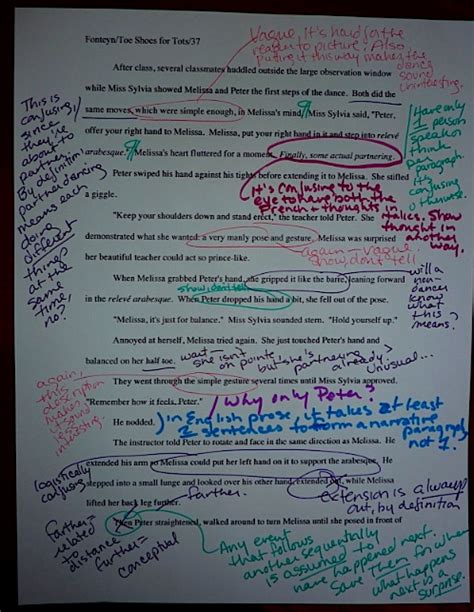 Fonteyn/Toe Shoes for Tots/37
Vague, it's hard for the
reader to picture. Also
putting it this way makes the
dance
sound
uninteresting.
After class, several classmates huddled outside the large observation window
while Miss Sylvia showed Melissa and Peter the first steps of the dance. Both did the
same moves, which were simple enough, in Melissa's mind. Miss Sylvia said, "Peter,
offer your right hand to Melissa. Melissa, put your right hand in it and step into relevé
arabesque." Melissa's heart fluttered for a moment. Finally, some actual partnering.
This is
confusing
since
they're
about to
partner.
By definition,
partner dancing
means each
doing
different
things
at the
same
time,
no?
Have only
1 person
speak or
think
per
paragraph
It's
confusing
otherwise.
Peter swiped his hand against his tights before extending it to Melissa. She stifled
a giggle.
It's confusing to the
eye to have both the
French & thoughts in
italics. Show
thought in
another
way.
"Keep your shoulders down and stand erect," the teacher told Peter. She
demonstrated what she wanted: a very manly pose and gesture. Melissa was surprised
her beautiful teacher could act so prince-like.
again - vague
Show, don't tell
When Melissa grabbed Peter's hand, she gripped it like the barre, leaning forward
in the relevé arabesque. When Peter dropped his hand a bit, she fell out of the pose.
show, don't tell
will a
non-
dancer
know
what
this
means?
"Melissa, it's just for balance." Miss Sylvia sounded stern. "Hold yourself up."
Annoyed at herself, Melissa tried again. She just touched Peter's hand and
balanced on her half toe.
wait - she isn't
on pointe,
but she's partnering
already?
Unusual...
They went through the simple gesture several times until Miss Sylvia approved.
again,
this
description
makes
it sound
"Remember how it feels, Peter."
Why only Peter?
He nodded.
in English prose, it takes at least
2 sentences to form a narrative
paragraph,
not 1.
The instructor told Peter to rotate and face in the same direction as Melissa. He
extended his arm so Melissa could put her left hand on it to support the arabesque. He
stepped into a small lunge and looked over his other hand, extended out, while Melissa
lifted her back leg further.
logistically
confusing
farther.
extension is always
out, by definition
farther =
related
to
distance
further =
conceptual
Then Peter straightened, walked around to turn Melissa until she posed in front of
Any event
that follows
another sequentially
is assumed to
have happened next.
Save Then for when
what happens
next is a
surprise.